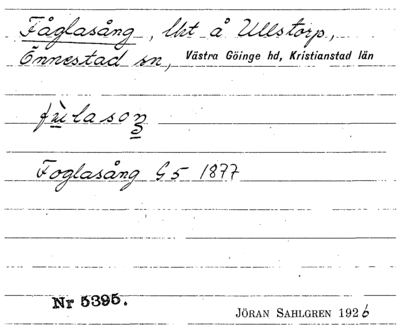 Fåglasång, lht å Ullstorp,
Önnestad sn, Västra Göinge hd, Kristianstad län
Foglasång G5 1877
Nr 5395.
JÖRAN SAHLGREN 1926